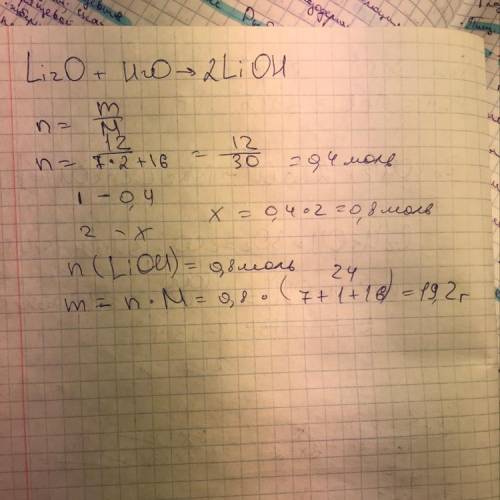 Li₂O + H₂O → 2LiOH
n = m/M
n = 12/(7·2+16) = 12/30 = 0,4 моль
1 – 0,4
2 – x
x = 0,4·2 = 0,8 моль
n(LiOH) = 0,8 моль
24
m = n·M = 0,8·(7+1+16) = 19,2 г